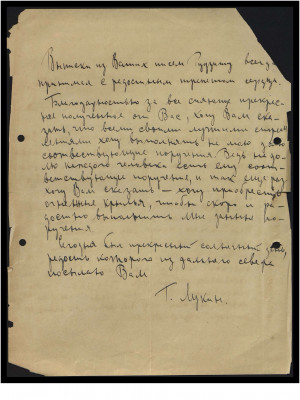 Выписки из Ваших писем Рудзиту всегда
принимаю с радостным трепетом сердца.
Благодарностью за все сияния прекрас-
ные полученные от Вас, хочу Вам ска-
зать, что всеми своими лучшими устрем-
лениями хочу выполнять на мою долю
соответствующие поручения. Ведь на до-
лю каждого человека есть ему соот-
ветствующие поручения, и так ещё раз
хочу Вам сказать — хочу приобрести
огненные крылья, чтобы скоро и ра-
достно выполнять мне данные по-
ручения.
Сегодня был прекрасный солнечный день,
радость которого из дальнего севера
посылаю Вам
Г. Лукин.